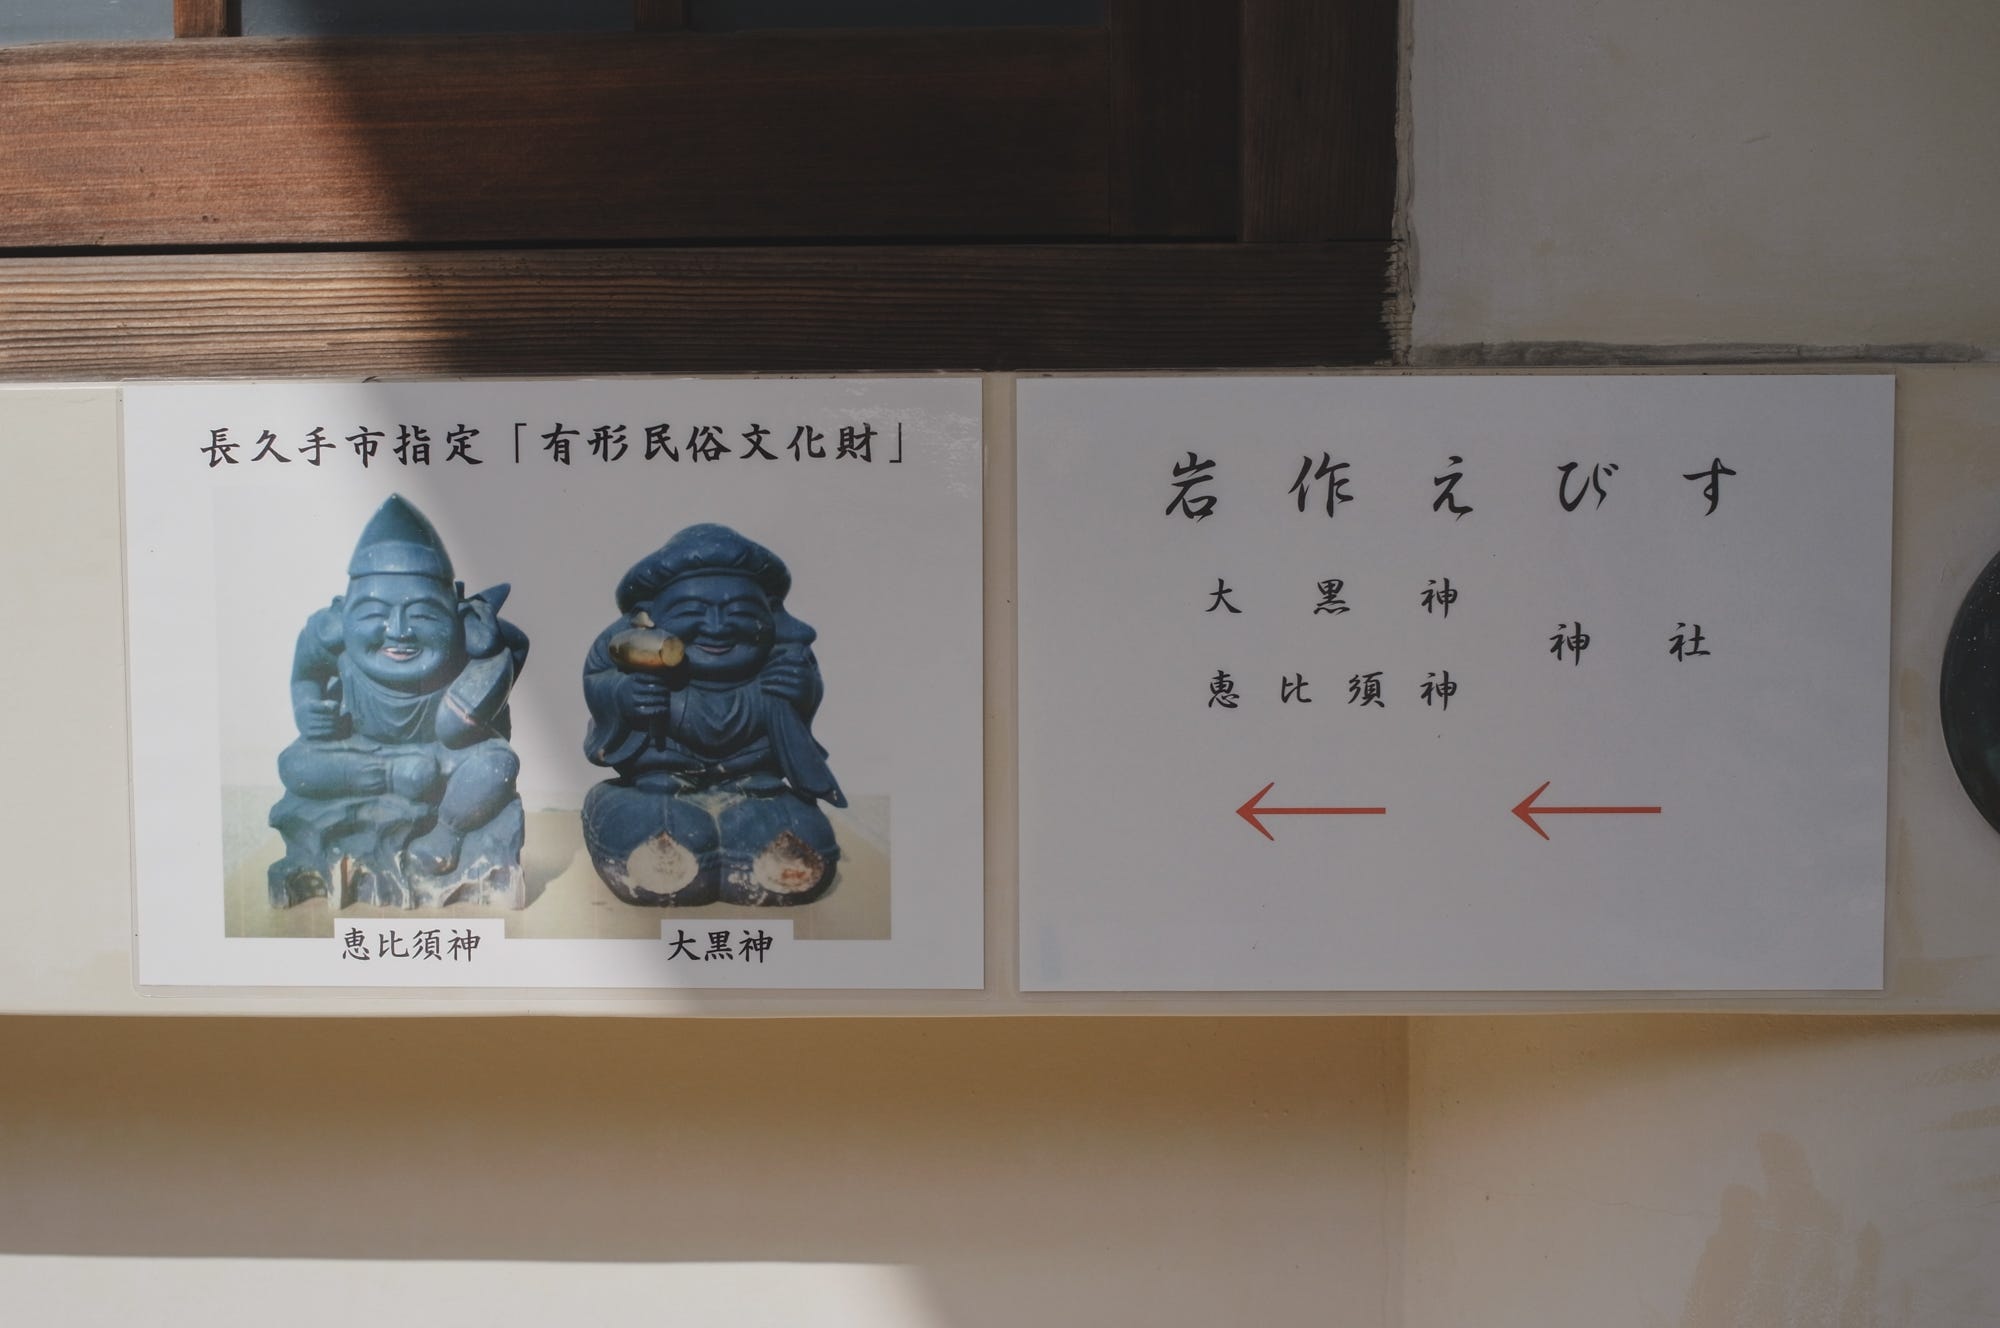 長久手市指定「有形民俗文化財」
恵比須神
大黒神
岩作えびす
大黒神
恵比須神
神社